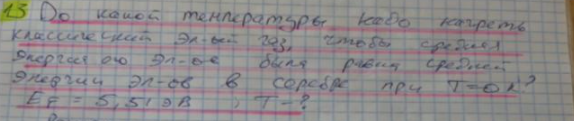 13 До какой температуры надо нагреть
классический эл-ый газ, чтобы средняя
энергия его эл-ов была равна средней
энергии эл-ов в серебре при T=0 K?
EF = 5,51 эВ , T-?